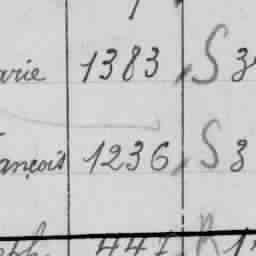 arie 1383 S 3
ançois 1236 S 3